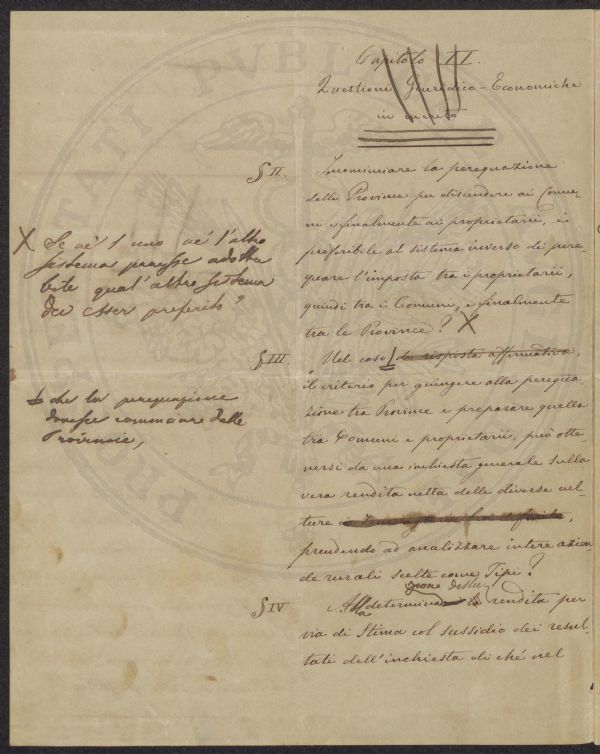 Capitolo II.
Questioni Giuridico-Economiche
in merito
§ II.
Incominciare la perequazione
dalle Province per discendere ai Comu-
ni e finalmente ai proprietarii, è
preferibile al sistema inverso di pere-
quare l'imposta tra i proprietarii,
quindi tra i Comuni, e finalmente
tra le Province? X
X Se nè l'uno nè l'altro
sistema paresse adotta
bile qual'altro sistema
dee esser preferito?
§ III.
Nel caso di risposta affermativa,
il criterio per giungere alla perequa
zione tra Province e preparare quella
tra Comuni e proprietarii, può otte-
nersi da una inchiesta generale sulla
vera rendita netta delle diverse cul-
ture
prendendo ad analizzare intere azien-
de rurali scelte come Tipi?
che la perequazione
dovesse cominciare dalle
Provincie,
§ IV
zione della
Alla determina rendita per
via di Stima col sussidio dei resul-
tati dell'inchiesta di ché nel
PVBLI